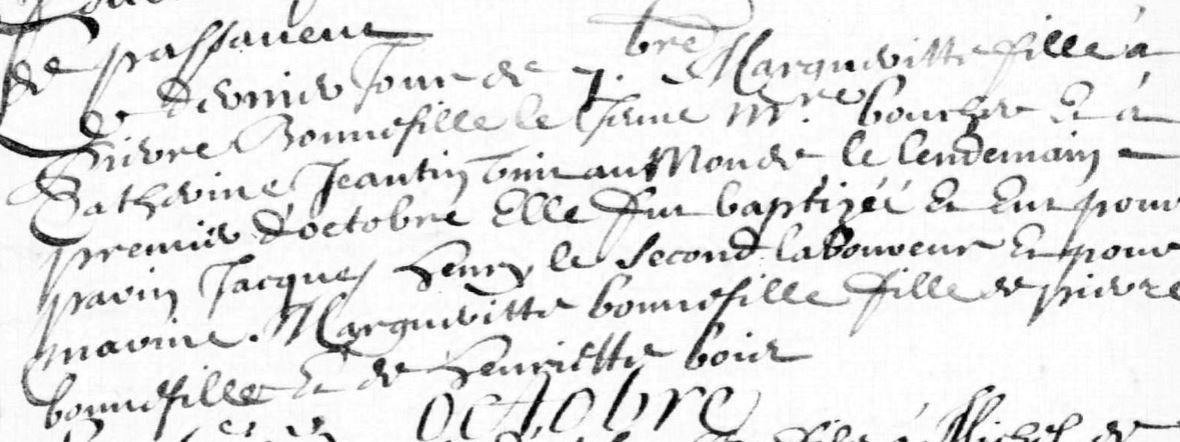 de passaueur
Le dernier Jour de 7.bre Margueritte fille à
Pierre Bonnefille le Jeune m.re boucher Et à
Catherine Jeantin Vint au Monde le lendemain
premier d'octobre Elle fut baptizéé Et Eut pour
parin Jacques henry le second laboureur Et pour
marine. Marguerittte bonnefille fille de pierre
bonnefille Et de henriette boiu
octobre